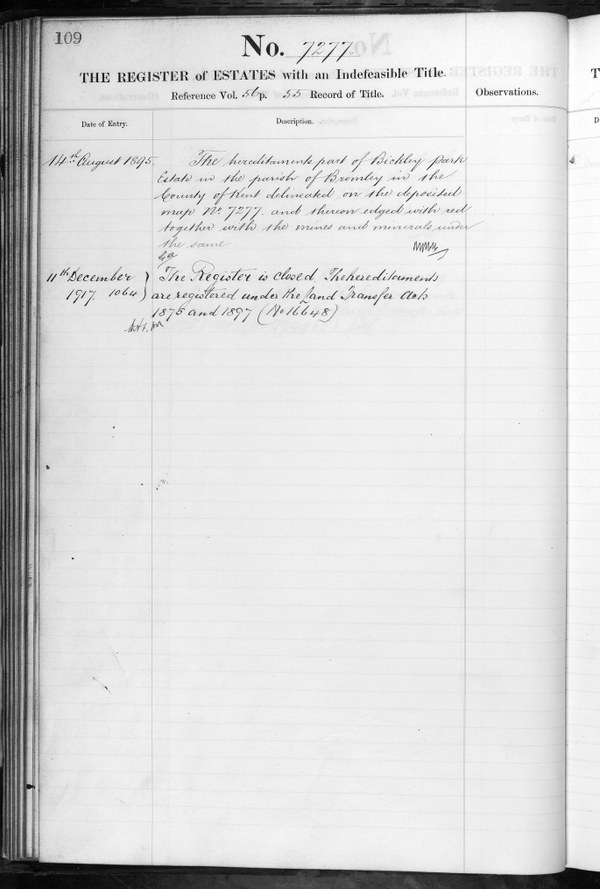 109
No. 7277.
THE REGISTER of ESTATES with an Indefeasible Title.
Reference Vol. 56 p. 55 Record of Title.
Observations.
Date of Entry.
Description.
14th August 1895.
The hereditaments part of Bickley Park
Estate in the parish of Bromley in the
County of Kent delineated on the deposited
map No. 7277. and thereon edged with red
together with the mines and minerals under
the same
11th December
1917. 1064
The Register is closed. The hereditaments
are registered under the Land Transfer Acts
1875 and 1897 (No 16648)